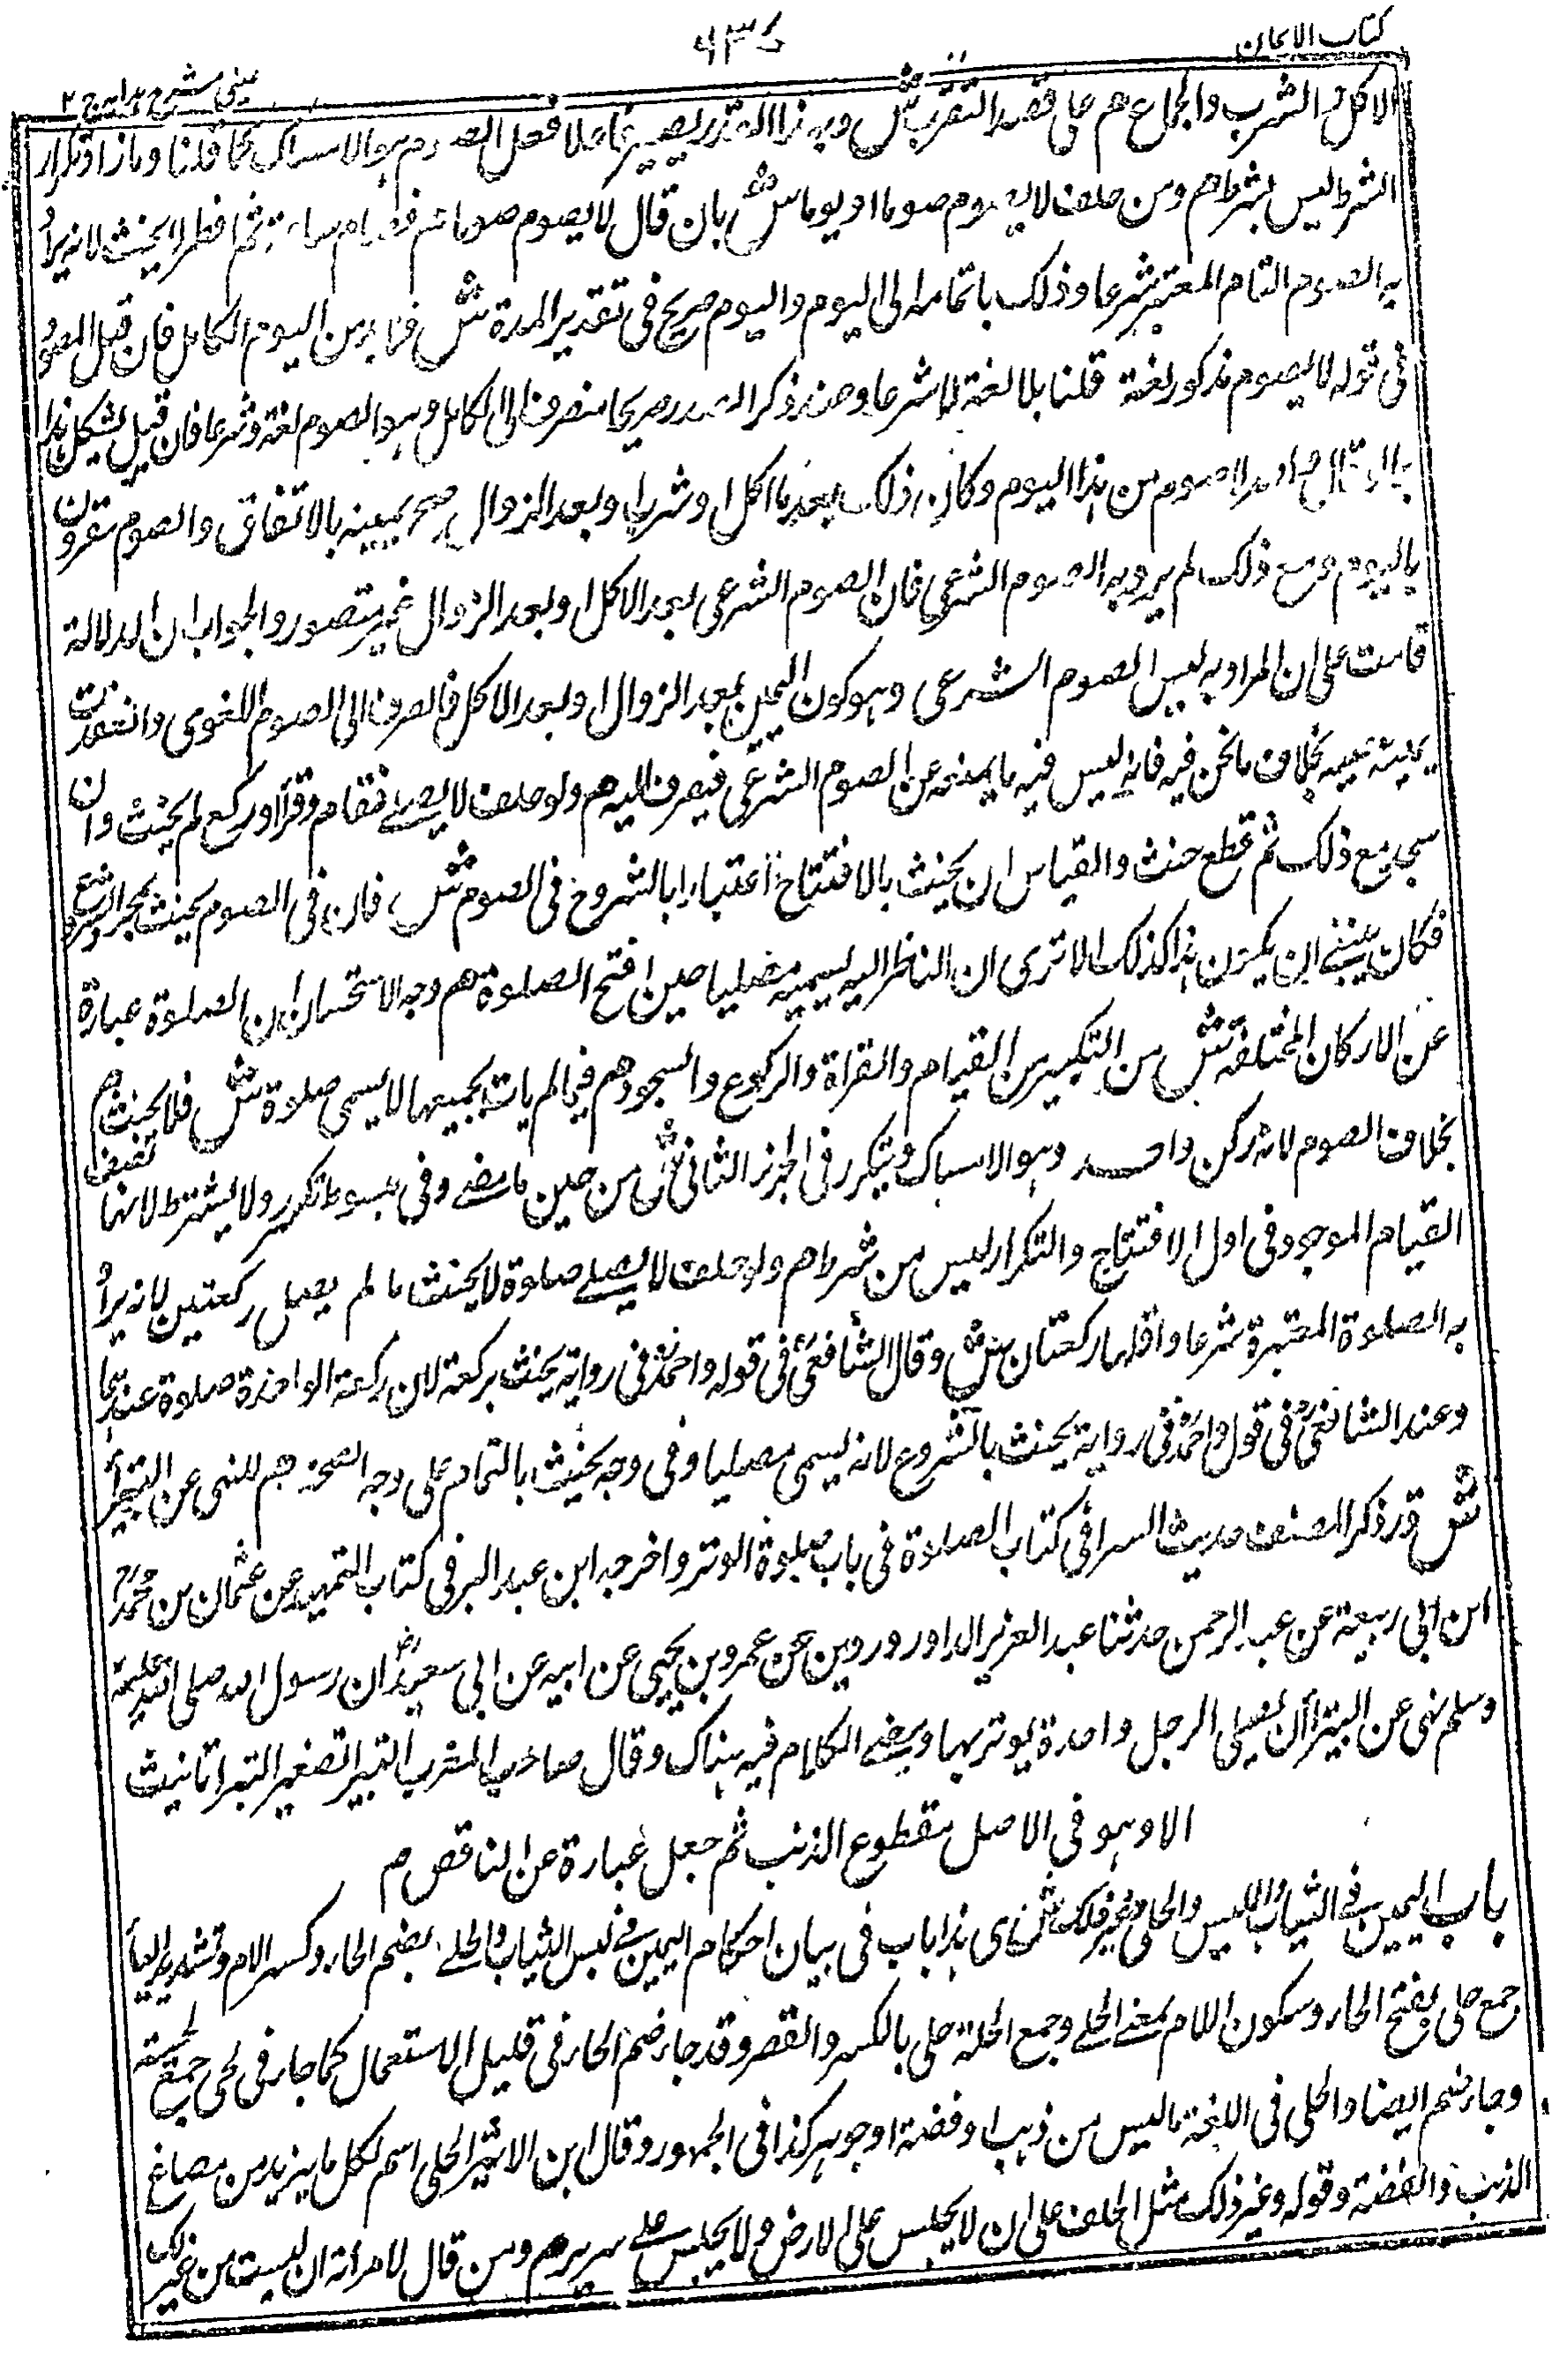 كتاب الايمان
٩٣٤
عينى شرح هدايه ج ٢
الاكل والشرب والجماع هم على قصد التقرب ش وبهذا القدر يصير فاعلا فعل الصوم هو الامساك كما قلنا وما زاد تكرار
الشرط ليس بشرط هم ومن حلف لا يصوم صوما او يوما ش بان قال لا يصوم صوما هم فصام ساعة ثم افطر لا يحنث لانه يراد
به الصوم التام المعتبر شرعا وذلك باتمامه الى اليوم واليوم صريح فى تقدير المدة ش فلا بد من اليوم الكامل فان قيل المصدر
فى قوله لا يصوم مذكور لغة قلنا بلا لغة لا شرعا وعند ذكر المصدر صريحا منصرف الى الكامل وهو الصوم لغة وشرعا فان قيل يشكل هذا
لاصوم من هذا اليوم وكان ذلك بعد ما اكل او شرب او بعد الزوال صح يمينه بالاتفاق والصوم مقرون
باليوم ومع ذلك لم يرد به الصوم الشرعى فان الصوم الشرعى بعد الاكل او بعد الزوال غير متصور والجواب ان الدلالة
قامت على ان المراد به ليس الصوم الشرعى وهو كون اليمين بعد الزوال او بعد الاكل فانصرف الى الصوم اللغوى وانعقدت
يمينه عليه بخلاف ما نحن فيه فانه ليس فيه ما يمنعه عن الصوم الشرعى فيصرف اليه هم ولو حلف لا يصلے فقام وقرأ وركع لم يحنث وان
سجد مع ذلك ثم قطع حنث والقياس ان يحنث بالافتتاح اعتبارا بالشروع فى الصوم ش فان فى الصوم يحنث بمجرد الشروع
فكان ينبغے ان يكون هذا كذلك الا ترى ان الناظر اليه يسميه مصليا حين افتتح الصلوة هم وجه الاستحسان ان الصلوة عبارة
عن الاركان المختلفة ش من التكبير من القيام والقراة والركوع والسجود هم فما لم يات بجميعها لا يسمى صلوة ش فلا يحنث هم
بخلاف الصوم لانه ركن واحد وهو الامساك ويتكرر فى الجزء الثانى ش من حين ما مضے وفى مبسوط تكرر ولا يشترط لانها تقتضى
القيام الموجود فى اول الافتتاح والتكرار ليس من شرط هم ولو حلف لا يصلے صلوة لا يحنث ما لم يصل ركعتين لانه يراد
به الصلوة المعتبرة شرعا واقلها ركعتان ش وقال الشافعى فى قوله واحمد فى رواية يحنث بركعة لان ركعة الواحدة صلوة عندهما
وعند الشافعى فى قول واحمد فى رواية يحنث بالشروع لانه يسمى مصليا وفى وجه يحنث بالتمام على وجه الصحة هم للنهى عن البتيرأ
ش قد ذكر المصنف حديث السرا فى كتاب الصلوة فى باب صلوة الوتر واخرجه ابن عبد البر فى كتاب التمهيد عن عثمان بن محمد
ابن ابى ربيعة عن عبد الرحمن حدثنا عبد العزيز الدراوردى عن عمرو بن يحيى عن ابيه عن ابى سعيد ان رسول الله صلى الله عليه
وسلم نهى عن البتيرأ ان يصلى الرجل واحدة يوتر بها ومضے الكلام فيه هناك وقال صاحب المغرب التبيرا تصغير التبرا تانيث
الا وهو فى الاصل مقطوع الذنب ثم جعل عبارة عن الناقص م
باب اليمين فے الثياب واللبس والحلى وغير ذلك ش اى هذا باب فى بيان احكام اليمين فے لبس الثياب والحلے بضم الحاء وكسر الام وتشديد اليا
جمع حلى بفتح الحاء وسكون اللام بمعنے الحلے وجمع الحلة حلى بالكسر والقصر وقد جاء ضم الحاء فى قليل الاستعمال كما جاء فى لحى جمع لحية
وجاء ضم ايضا والحلى فى اللغة ما لبس من ذهب او فضة او جوهر كذا فى الجمهور وقال ابن الاثير الحلى اسم لكل ما يزيد من مصاغ
الذهب والفضة وقوله وغير ذلك مثل الحلف على ان لا يجلس على الارض ولا يجلس علے سرير هم ومن قال لامراته ان لبست من غير لك